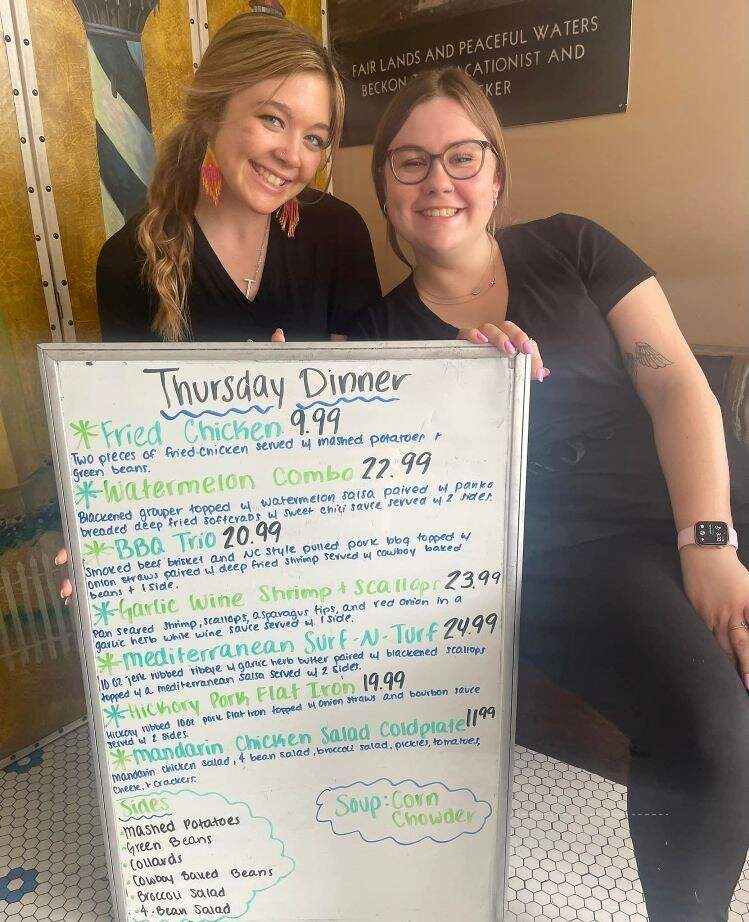 FAIR LANDS AND PEACEFUL WATERS
BECKON
CATIONIST AND
KER
T
Thursday Dinner
*Fried Chicken 9.99
Two pieces of fried chicken served w/ mashed potatoes +
green beans.
*Watermelon Combo 22.99
Blackened grouper topped w/ watermelon salsa paired w/ panko
breaded deep fried softcrabs w/ sweet chili sauce served w/ 2 sides.
*BBQ Trio 20.99
Smoked beef brisket and NC style pulled pork bbq topped w/
onion straws paired w/ deep fried shrimp served w/ cowboy baked
beans + 1 side.
*Garlic Wine Shrimp + Scallops 23.99
Pan seared shrimp, scallops, asparagus tips, and red onion in a
garlic herb white wine sauce served w/ 1 side.
*Mediterranean Surf-N-Turf 24.99
10 oz jerk rubbed ribeye w/ garlic herb butter paired w/ blackened scallops
topped w/ a mediterranean salsa served w/ 2 sides.
*Hickory Pork Flat Iron 19.99
Hickory rubbed 10oz pork flat iron topped w/ onion straws and bourbon sauce
served w/ 2 sides.
*Mandarin Chicken Salad Coldplate 11.99
Mandarin chicken salad, 4 bean salad, broccoli salad, pickles, tomatoes,
cheese, + crackers.
Sides
·Mashed Potatoes
·Green Beans
·Collards
·Cowboy Baked Beans
·Broccoli Salad
·4-Bean Salad
Soup: Corn
Chowder